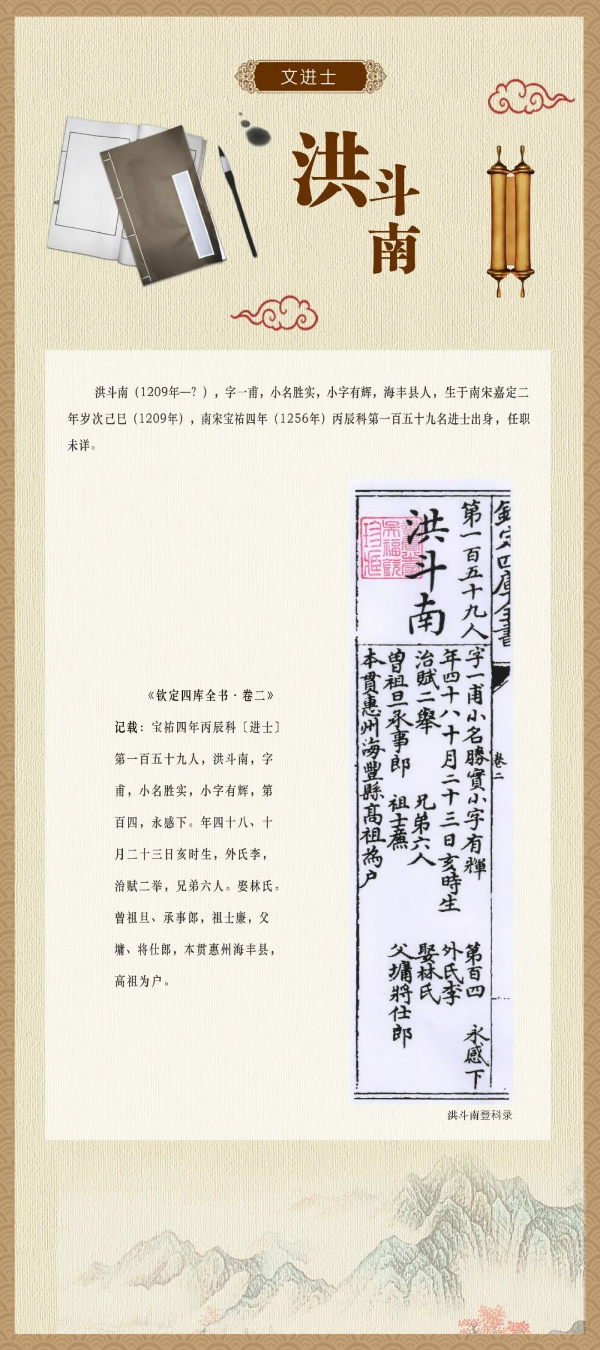 文进士
洪斗南
洪斗南（1209年—？），字一甫，小名胜实，小字有辉，海丰县人，生于南宋嘉定二
年岁次己巳（1209年），南宋宝祐四年（1256年）丙辰科第一百五十九名进士出身，任职
未详。
《钦定四库全书·卷二》
记载：宝祐四年丙辰科〔进士〕
第一百五十九人，洪斗南，字
甫，小名胜实，小字有辉，第
百四，永感下。年四十八、十
月二十三日亥时生，外氏李，
治赋二举，兄弟六人。娶林氏。
曾祖旦、承事郎，祖士廉，父
墉、将仕郎，本贯惠州海丰县，
高祖为户。
欽定四庫全書
卷二
第一百五十九人
洪斗南
字一甫小名勝實小字有輝 第百四 永感下
年四十八十月二十三日亥時生 外氏李
治賦二舉 兄弟六人 娶林氏
曽祖旦承事郎 祖士廌 父墉將仕郎
本貫惠州海豐縣高祖為户
洪斗南登科录